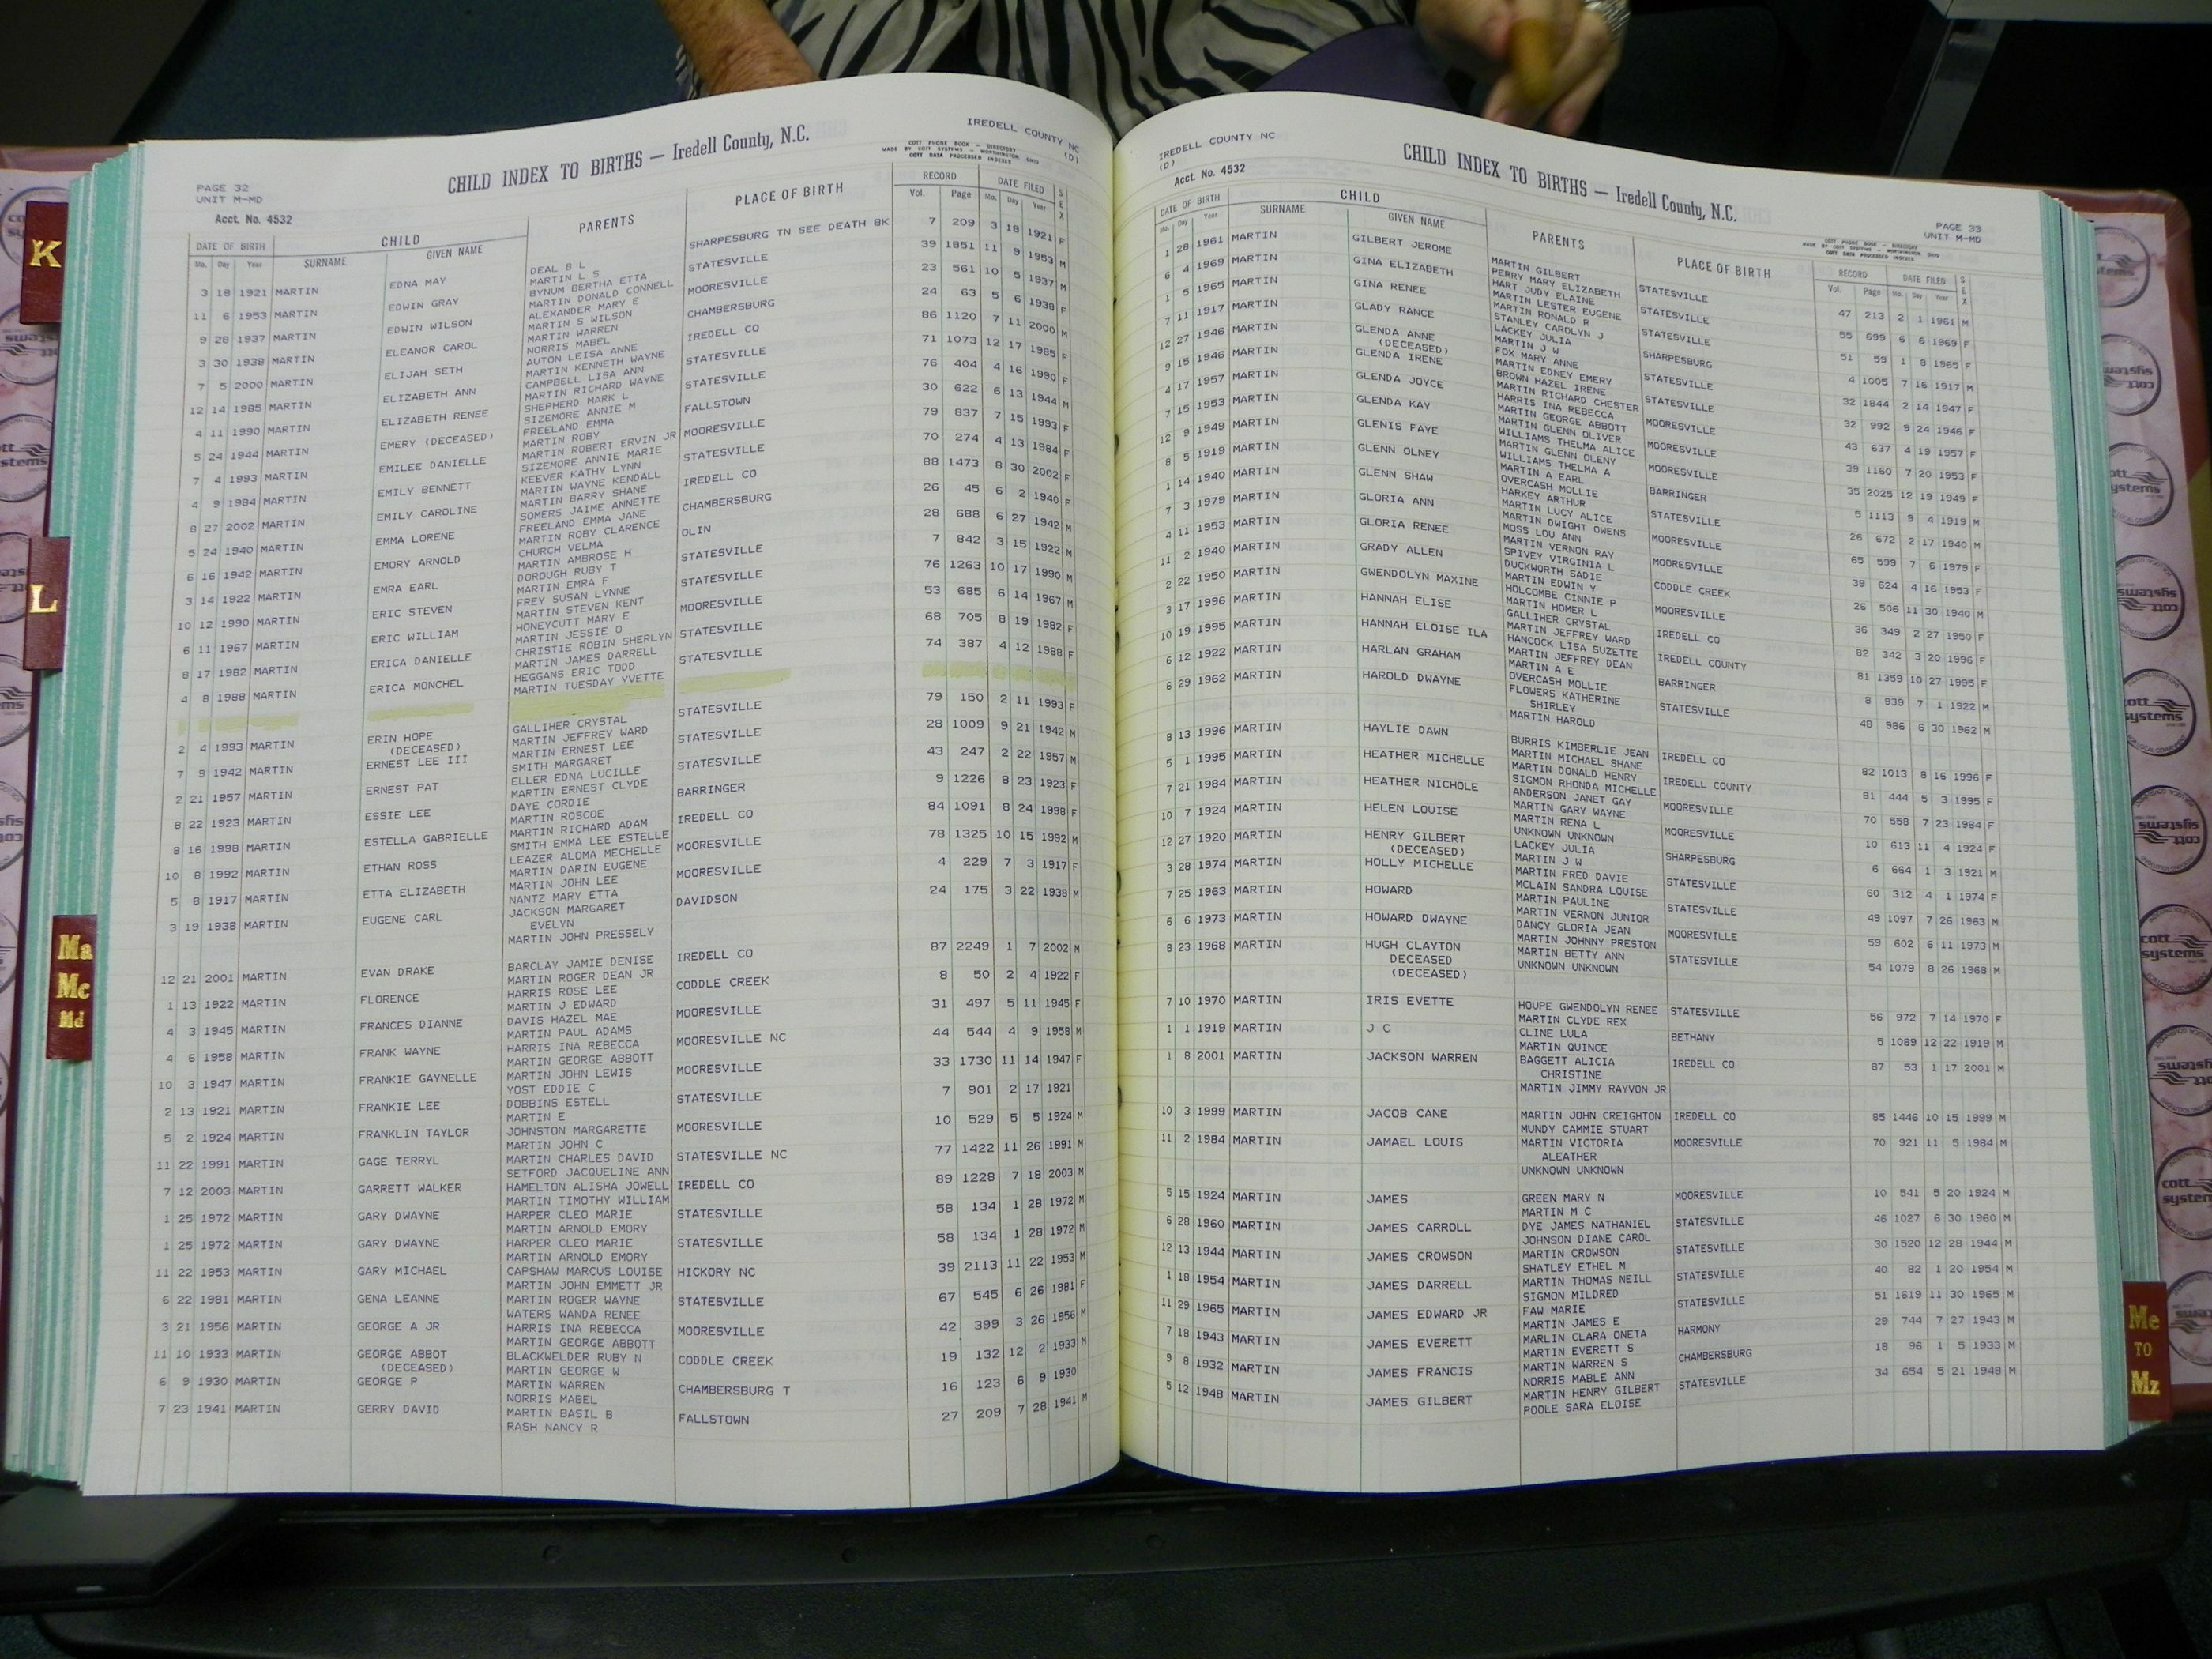 PAGE 32
UNIT M-MD
Acct. No. 4532
CHILD INDEX TO BIRTHS — Iredell County, N.C.
COTT PHONE BOOK - DIRECTORY
MADE BY COTT SYSTEMS - WORTHINGTON OHIO
COTT DATA PROCESSED INDEXES
IREDELL COUNTY NC
(D)
DATE OF BIRTH CHILD PARENTS PLACE OF BIRTH RECORD DATE FILED SEX
Mo. Day Year SURNAME GIVEN NAME Vol. Page Mo. Day Year
3 18 1921 MARTIN EDNA MAY DEAL B L SHARPESBURG TN SEE DEATH BK 7 209 3 18 1921 F
MARTIN L S
11 6 1953 MARTIN EDWIN GRAY BYNUM BERTHA ETTA STATESVILLE 39 1851 11 9 1953 M
MARTIN DONALD CONNELL
9 28 1937 MARTIN EDWIN WILSON ALEXANDER MARY E MOORESVILLE 23 561 10 5 1937 M
MARTIN S WILSON
3 30 1938 MARTIN ELEANOR CAROL MARTIN WARREN CHAMBERSBURG 24 63 5 6 1938 F
NORRIS MABEL
7 5 2000 MARTIN ELIJAH SETH AUTON LEISA ANNE IREDELL CO 86 1120 7 11 2000 M
MARTIN KENNETH WAYNE
12 14 1985 MARTIN ELIZABETH ANN CAMPBELL LISA ANN STATESVILLE 71 1073 12 17 1985 F
MARTIN RICHARD WAYNE
4 11 1990 MARTIN ELIZABETH RENEE SHEPHERD MARK L STATESVILLE 76 404 4 16 1990 F
SIZEMORE ANNIE M
5 24 1944 MARTIN EMERY (DECEASED) FREELAND EMMA FALLSTOWN 30 622 6 13 1944 M
MARTIN ROBY
7 4 1993 MARTIN EMILEE DANIELLE MARTIN ROBERT ERVIN JR MOORESVILLE 79 837 7 15 1993 F
SIZEMORE ANNIE MARIE
4 9 1984 MARTIN EMILY BENNETT KEEVER KATHY LYNN STATESVILLE 70 274 4 13 1984 F
MARTIN WAYNE KENDALL
8 27 2002 MARTIN EMILY CAROLINE MARTIN BARRY SHANE IREDELL CO 88 1473 8 30 2002 F
SOMERS JAIME ANNETTE
5 24 1940 MARTIN EMMA LORENE FREELAND EMMA JANE CHAMBERSBURG 26 45 6 2 1940 F
MARTIN ROBY CLARENCE
6 16 1942 MARTIN EMORY ARNOLD CHURCH VELMA OLIN 28 688 6 27 1942 M
MARTIN AMBROSE H
3 14 1922 MARTIN EMRA EARL DOROUGH RUBY T STATESVILLE 7 842 3 15 1922 M
MARTIN EMRA F
10 12 1990 MARTIN ERIC STEVEN FREY SUSAN LYNNE STATESVILLE 76 1263 10 17 1990 M
MARTIN STEVEN KENT
6 11 1967 MARTIN ERIC WILLIAM HONEYCUTT MARY E MOORESVILLE 53 685 6 14 1967 M
MARTIN JESSIE O
8 17 1982 MARTIN ERICA DANIELLE CHRISTIE ROBIN SHERLYN STATESVILLE 68 705 8 19 1982 F
MARTIN JAMES DARRELL
4 8 1988 MARTIN ERICA MONCHEL HEGGANS ERIC TODD STATESVILLE 74 387 4 12 1988 F
MARTIN TUESDAY YVETTE
2 4 1993 MARTIN ERIN HOPE GALLIHER CRYSTAL STATESVILLE 79 150 2 11 1993 F
(DECEASED) MARTIN JEFFREY WARD
7 9 1942 MARTIN ERNEST LEE III MARTIN ERNEST LEE STATESVILLE 28 1009 9 21 1942 M
SMITH MARGARET
2 21 1957 MARTIN ERNEST PAT ELLER EDNA LUCILLE STATESVILLE 43 247 2 22 1957 M
MARTIN ERNEST CLYDE
8 22 1923 MARTIN ESSIE LEE DAYE CORDIE BARRINGER 9 1226 8 23 1923 F
MARTIN ROSCOE
8 16 1998 MARTIN ESTELLA GABRIELLE MARTIN RICHARD ADAM IREDELL CO 84 1091 8 24 1998 F
SMITH EMMA LEE ESTELLE
10 8 1992 MARTIN ETHAN ROSS LEAZER ALOMA MECHELLE MOORESVILLE 78 1325 10 15 1992 M
MARTIN DARIN EUGENE
5 8 1917 MARTIN ETTA ELIZABETH MARTIN JOHN LEE MOORESVILLE 4 229 7 3 1917 F
NANTZ MARY ETTA
3 19 1938 MARTIN EUGENE CARL JACKSON MARGARET DAVIDSON 24 175 3 22 1938 M
EVELYN
MARTIN JOHN PRESSELY
12 21 2001 MARTIN EVAN DRAKE BARCLAY JAMIE DENISE IREDELL CO 87 2249 1 7 2002 M
MARTIN ROGER DEAN JR
1 13 1922 MARTIN FLORENCE HARRIS ROSE LEE CODDLE CREEK 8 50 2 4 1922 F
MARTIN J EDWARD
4 3 1945 MARTIN FRANCES DIANNE DAVIS HAZEL MAE MOORESVILLE 31 497 5 11 1945 F
MARTIN PAUL ADAMS
4 6 1958 MARTIN FRANK WAYNE HARRIS INA REBECCA MOORESVILLE NC 44 544 4 9 1958 M
MARTIN GEORGE ABBOTT
10 3 1947 MARTIN FRANKIE GAYNELLE MARTIN JOHN LEWIS MOORESVILLE 33 1730 11 14 1947 F
YOST EDDIE C
2 13 1921 MARTIN FRANKIE LEE DOBBINS ESTELL STATESVILLE 7 901 2 17 1921
MARTIN E
5 2 1924 MARTIN FRANKLIN TAYLOR JOHNSTON MARGARETTE MOORESVILLE 10 529 5 5 1924 M
MARTIN JOHN C
11 22 1991 MARTIN GAGE TERRYL MARTIN CHARLES DAVID STATESVILLE NC 77 1422 11 26 1991 M
SETFORD JACQUELINE ANN
7 12 2003 MARTIN GARRETT WALKER HAMELTON ALISHA JOWELL IREDELL CO 89 1228 7 18 2003 M
MARTIN TIMOTHY WILLIAM
1 25 1972 MARTIN GARY DWAYNE HARPER CLEO MARIE STATESVILLE 58 134 1 28 1972 M
MARTIN ARNOLD EMORY
1 25 1972 MARTIN GARY DWAYNE HARPER CLEO MARIE STATESVILLE 58 134 1 28 1972 M
MARTIN ARNOLD EMORY
11 22 1953 MARTIN GARY MICHAEL CAPSHAW MARCUS LOUISE HICKORY NC 39 2113 11 22 1953 M
MARTIN JOHN EMMETT JR
6 22 1981 MARTIN GENA LEANNE MARTIN ROGER WAYNE STATESVILLE 67 545 6 26 1981 F
WATERS WANDA RENEE
3 21 1956 MARTIN GEORGE A JR HARRIS INA REBECCA MOORESVILLE 42 399 3 26 1956 M
MARTIN GEORGE ABBOTT
11 10 1933 MARTIN GEORGE ABBOT BLACKWELDER RUBY N CODDLE CREEK 19 132 12 2 1933 M
(DECEASED) MARTIN GEORGE W
6 9 1930 MARTIN GEORGE P MARTIN WARREN CHAMBERSBURG T 16 123 6 9 1930
NORRIS MABEL
7 23 1941 MARTIN GERRY DAVID MARTIN BASIL B FALLSTOWN 27 209 7 28 1941 M
RASH NANCY R
IREDELL COUNTY NC
(D)
Acct. No. 4532
CHILD INDEX TO BIRTHS — Iredell County, N.C.
PAGE 33
UNIT M-MD
COTT PHONE BOOK - DIRECTORY
MADE BY COTT SYSTEMS - WORTHINGTON OHIO
COTT DATA PROCESSED INDEXES
DATE OF BIRTH CHILD PARENTS PLACE OF BIRTH RECORD DATE FILED SEX
Mo. Day Year SURNAME GIVEN NAME Vol. Page Mo. Day Year
1 28 1961 MARTIN GILBERT JEROME MARTIN GILBERT STATESVILLE 47 213 2 1 1961 M
PERRY MARY ELIZABETH
6 4 1969 MARTIN GINA ELIZABETH HART JUDY ELAINE STATESVILLE 55 699 6 6 1969 F
MARTIN LESTER EUGENE
1 5 1965 MARTIN GINA RENEE MARTIN RONALD R STATESVILLE 51 59 1 8 1965 F
STANLEY CAROLYN J
7 11 1917 MARTIN GLADY RANCE LACKEY JULIA SHARPESBURG 4 1005 7 16 1917 M
MARTIN J W
12 27 1946 MARTIN GLENDA ANNE FOX MARY ANNE STATESVILLE 32 1844 2 14 1947 F
(DECEASED) MARTIN EDNEY EMERY
9 15 1946 MARTIN GLENDA IRENE BROWN HAZEL IRENE STATESVILLE 32 992 9 24 1946 F
MARTIN RICHARD CHESTER
4 17 1957 MARTIN GLENDA JOYCE HARRIS INA REBECCA MOORESVILLE 43 637 4 19 1957 F
MARTIN GEORGE ABBOTT
7 15 1953 MARTIN GLENDA KAY MARTIN GLENN OLIVER MOORESVILLE 39 1160 7 20 1953 F
WILLIAMS THELMA ALICE
12 9 1949 MARTIN GLENIS FAYE MARTIN GLENN OLENY MOORESVILLE 35 2025 12 19 1949 F
WILLIAMS THELMA A
8 5 1919 MARTIN GLENN OLNEY MARTIN A EARL BARRINGER 5 1113 9 4 1919 M
OVERCASH MOLLIE
1 14 1940 MARTIN GLENN SHAW HARKEY ARTHUR STATESVILLE 26 672 2 17 1940 M
MARTIN LUCY ALICE
7 3 1979 MARTIN GLORIA ANN MARTIN DWIGHT OWENS MOORESVILLE 65 599 7 6 1979 F
MOSS LOU ANN
4 11 1953 MARTIN GLORIA RENEE MARTIN VERNON RAY MOORESVILLE 39 624 4 16 1953 F
SPIVEY VIRGINIA L
11 2 1940 MARTIN GRADY ALLEN DUCKWORTH SADIE CODDLE CREEK 26 506 11 30 1940 M
MARTIN EDWIN Y
2 22 1950 MARTIN GWENDOLYN MAXINE HOLCOMBE CINNIE P MOORESVILLE 36 349 2 27 1950 F
MARTIN HOMER L
3 17 1996 MARTIN HANNAH ELISE GALLIHER CRYSTAL IREDELL CO 82 342 3 20 1996 F
MARTIN JEFFREY WARD
10 19 1995 MARTIN HANNAH ELOISE ILA HANCOCK LISA SUZETTE IREDELL COUNTY 81 1359 10 27 1995 F
MARTIN JEFFREY DEAN
6 12 1922 MARTIN HARLAN GRAHAM MARTIN A E BARRINGER 8 939 7 1 1922 M
OVERCASH MOLLIE
6 29 1962 MARTIN HAROLD DWAYNE FLOWERS KATHERINE STATESVILLE 48 986 6 30 1962 M
SHIRLEY
MARTIN HAROLD
8 13 1996 MARTIN HAYLIE DAWN BURRIS KIMBERLIE JEAN IREDELL CO 82 1013 8 16 1996 F
MARTIN MICHAEL SHANE
5 1 1995 MARTIN HEATHER MICHELLE MARTIN DONALD HENRY IREDELL COUNTY 81 444 5 3 1995 F
SIGMON RHONDA MICHELLE
7 21 1984 MARTIN HEATHER NICHOLE ANDERSON JANET GAY MOORESVILLE 70 558 7 23 1984 F
MARTIN GARY WAYNE
10 7 1924 MARTIN HELEN LOUISE MARTIN RENA L MOORESVILLE 10 613 11 4 1924 F
UNKNOWN UNKNOWN
12 27 1920 MARTIN HENRY GILBERT LACKEY JULIA SHARPESBURG 6 664 1 3 1921 M
(DECEASED) MARTIN J W
3 28 1974 MARTIN HOLLY MICHELLE MARTIN FRED DAVIE STATESVILLE 60 312 4 1 1974 F
MCLAIN SANDRA LOUISE
7 25 1963 MARTIN HOWARD MARTIN PAULINE STATESVILLE 49 1097 7 26 1963 M
MARTIN VERNON JUNIOR
6 6 1973 MARTIN HOWARD DWAYNE DANCY GLORIA JEAN MOORESVILLE 59 602 6 11 1973 M
MARTIN JOHNNY PRESTON
8 23 1968 MARTIN HUGH CLAYTON MARTIN BETTY ANN STATESVILLE 54 1079 8 26 1968 M
DECEASED UNKNOWN UNKNOWN
(DECEASED)
7 10 1970 MARTIN IRIS EVETTE HOUPE GWENDOLYN RENEE STATESVILLE 56 972 7 14 1970 F
MARTIN CLYDE REX
1 1 1919 MARTIN J C CLINE LULA BETHANY 5 1089 12 22 1919 M
MARTIN QUINCE
1 8 2001 MARTIN JACKSON WARREN BAGGETT ALICIA IREDELL CO 87 53 1 17 2001 M
CHRISTINE
MARTIN JIMMY RAYVON JR
10 3 1999 MARTIN JACOB CANE MARTIN JOHN CREIGHTON IREDELL CO 85 1446 10 15 1999 M
MUNDY CAMMIE STUART
11 2 1984 MARTIN JAMAEL LOUIS MARTIN VICTORIA MOORESVILLE 70 921 11 5 1984 M
ALEATHER
UNKNOWN UNKNOWN
5 15 1924 MARTIN JAMES GREEN MARY N MOORESVILLE 10 541 5 20 1924 M
MARTIN M C
6 28 1960 MARTIN JAMES CARROLL DYE JAMES NATHANIEL STATESVILLE 46 1027 6 30 1960 M
JOHNSON DIANE CAROL
12 13 1944 MARTIN JAMES CROWSON MARTIN CROWSON STATESVILLE 30 1520 12 28 1944 M
SHATLEY ETHEL M
1 18 1954 MARTIN JAMES DARRELL MARTIN THOMAS NEILL STATESVILLE 40 82 1 20 1954 M
SIGMON MILDRED
11 29 1965 MARTIN JAMES EDWARD JR FAW MARIE STATESVILLE 51 1619 11 30 1965 M
MARTIN JAMES E
7 18 1943 MARTIN JAMES EVERETT MARLIN CLARA ONETA HARMONY 29 744 7 27 1943 M
MARTIN EVERETT S
9 8 1932 MARTIN JAMES FRANCIS MARTIN WARREN S CHAMBERSBURG 18 96 1 5 1933 M
NORRIS MABLE ANN
5 12 1948 MARTIN JAMES GILBERT MARTIN HENRY GILBERT STATESVILLE 34 654 5 21 1948 M
POOLE SARA ELOISE
K
L
Ma
Mc
Md
Me
TO
Mz
cott
systems